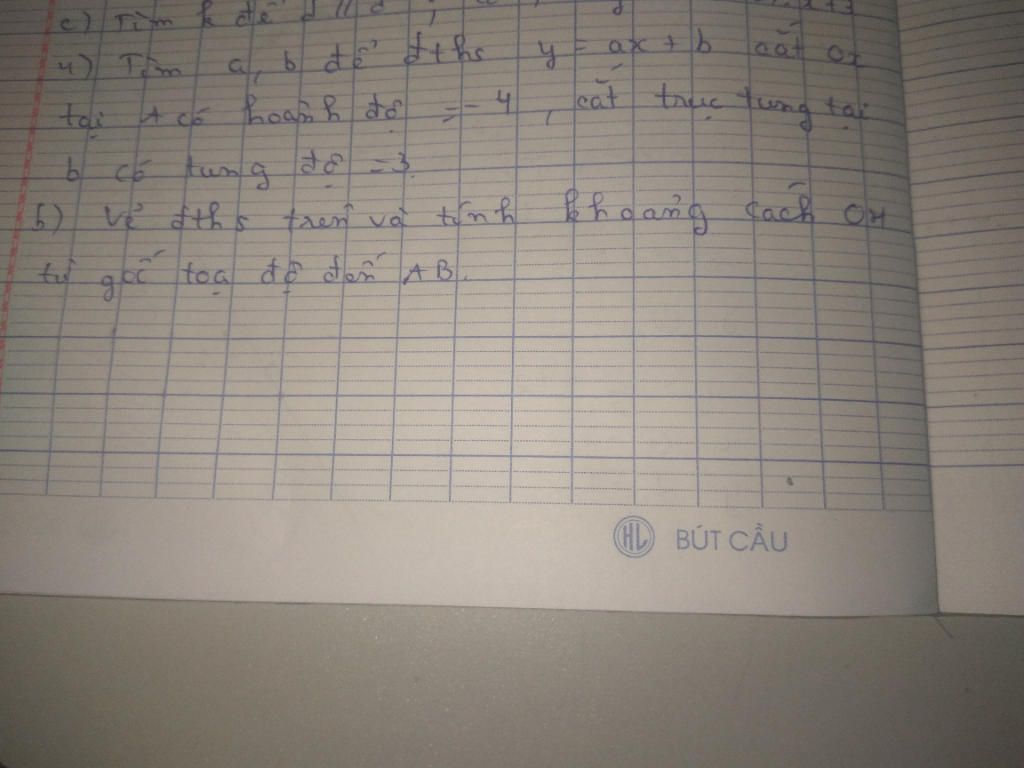 c) Tìm k để d // d
4) Tìm a, b để đths y = ax + b cắt Ox
tại A có hoành độ = -4, cắt trục tung tại
b có tung độ = 3.
5) Vẽ đths trên và tính khoảng cách OH
từ gốc toạ độ đến AB.
HL BÚT CẦU